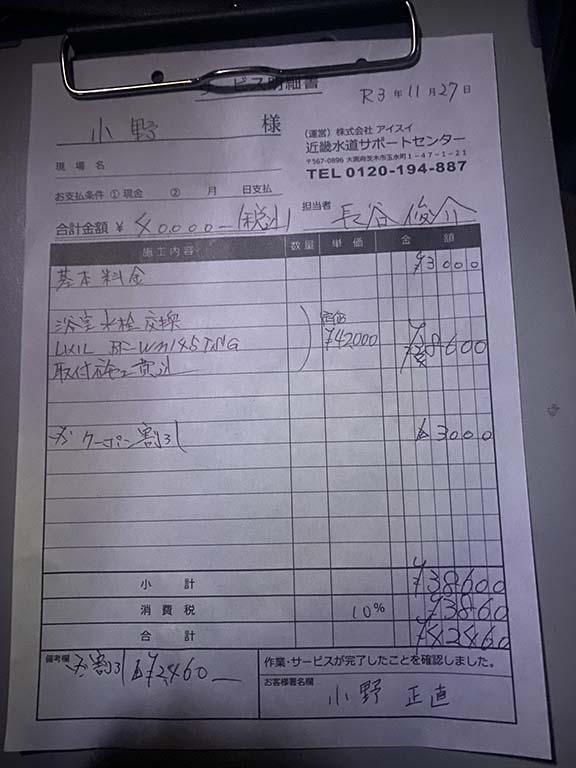 サービス明細書
R3年11月27日
小野 様
(運営) 株式会社 アイスイ
近畿水道サポートセンター
〒567-0896 大阪府茨木市玉水町1-47-1-21
TEL 0120-194-887
現場名
お支払条件 ① 現金 ② 月 日支払
担当者 長谷 俊介
合計金額 ¥ 40,000-(税込)
施工内容 数量 単価 金額
基本料金 ¥3000
浴室水栓交換 定価
LIXIL BF-WM145TSG ¥42000
取付施工費込
クーポン割引 ▲3000
小計 ¥38600
消費税 10% ¥3860
合計 ¥42460
備考欄
割引 ▲¥2,460-
作業・サービスが完了したことを確認しました。
お客様署名欄
小野 正直